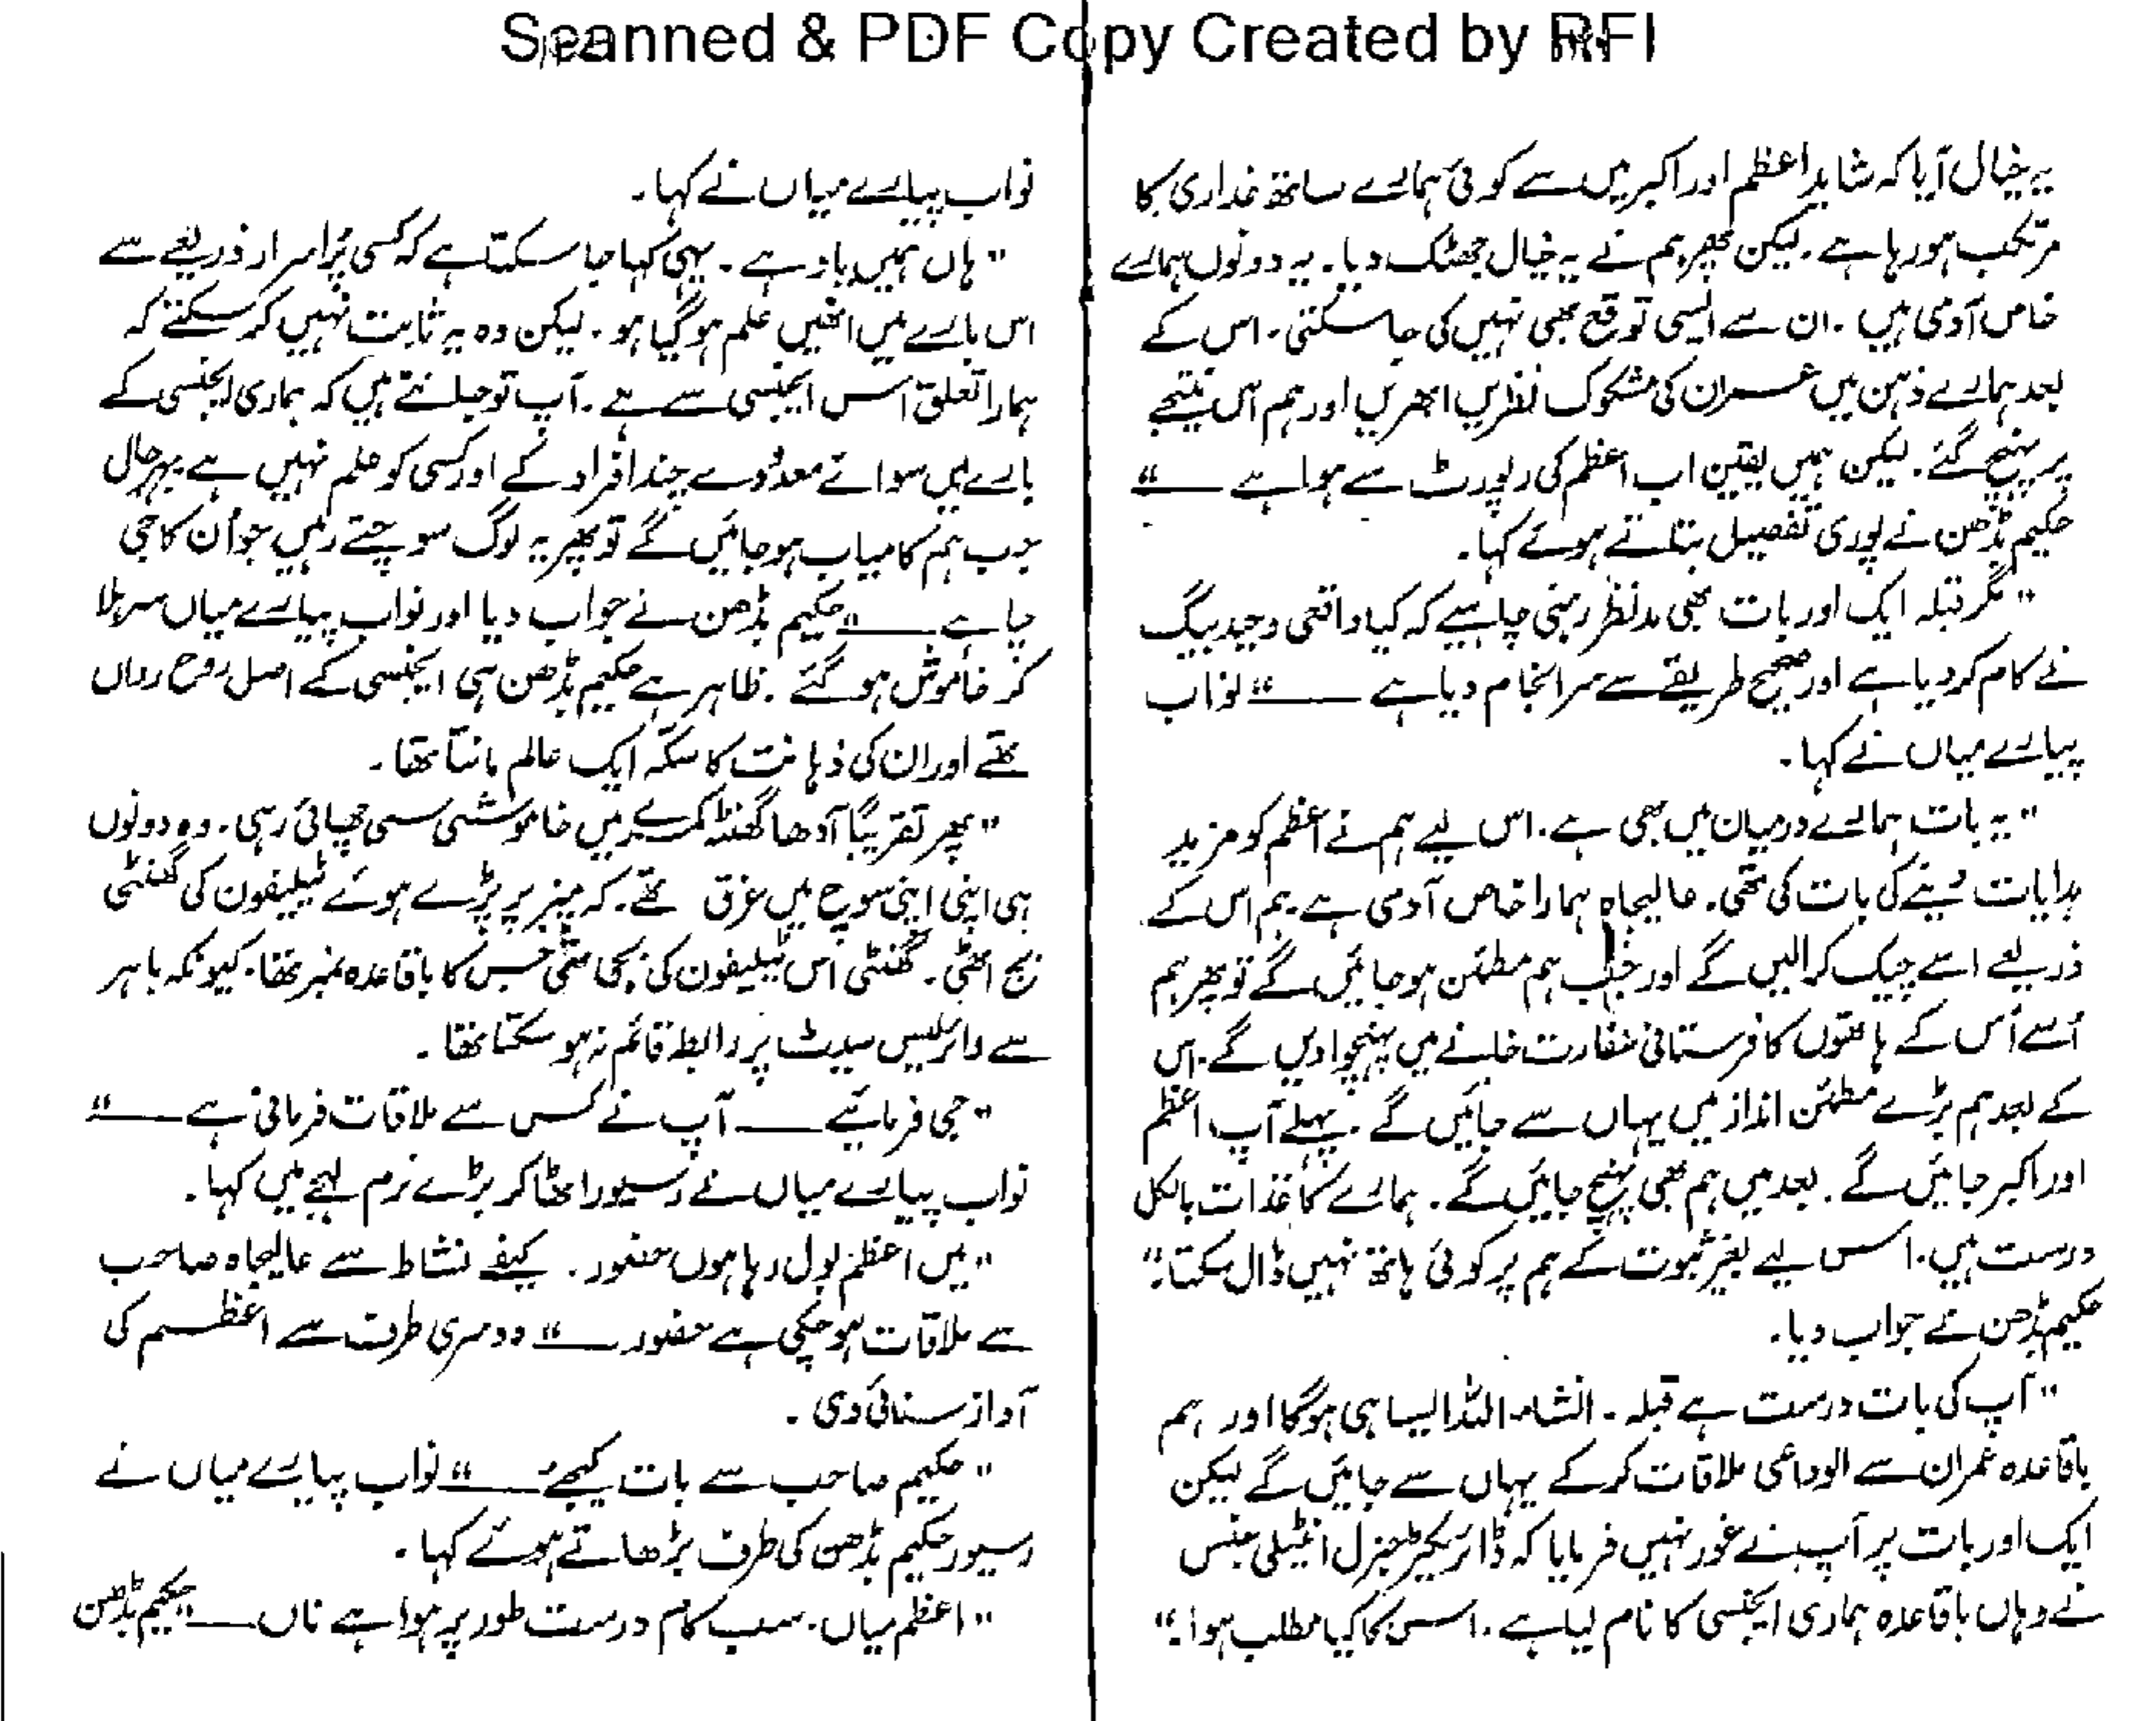 Scanned & PDF Copy Created by RFI
یہ خیال آیا کہ شاید اعظم اور اکبر میں سے کوئی ہمارے ساتھ غداری کا
مرتکب ہو رہا ہے۔ لیکن پھر ہم نے یہ خیال جھٹک دیا۔ یہ دونوں ہمارے
خاص آدمی ہیں۔ ان سے ایسی توقع بھی نہیں کی جا سکتی۔ اس کے
بعد ہمارے ذہن میں عمران کی مشکوک نظریں ابھریں اور ہم اس نتیجے
پر پہنچ گئے۔ لیکن ہمیں یقین اب اعظم کی رپورٹ سے ہوا ہے ——"
حکیم بڈھن نے پوری تفصیل بتاتے ہوئے کہا۔
"مگر قبلہ ایک اور بات بھی مدنظر رہنی چاہیے کہ کیا واقعی وحید بیگ
نے کام کر دیا ہے اور صحیح طریقے سے سرانجام دیا ہے ——" نواب
پیارے میاں نے کہا۔
"یہ بات ہمارے درمیان میں بھی ہے۔ اس لیے ہم نے اعظم کو مزید
ہدایات دینے کی بات کی تھی۔ عالیجاہ ہمارا خاص آدمی ہے۔ ہم اس کے
ذریعے اسے چیک کرا لیں گے اور جب ہم مطمئن ہو جائیں گے تو پھر ہم
اُسے اُس کے ہاتھوں کافرستانی سفارت خانے میں پہنچوا دیں گے۔ اس
کے بعد ہم بڑے مطمئن انداز میں یہاں سے جائیں گے۔ پہلے آپ اعظم
اور اکبر جائیں گے۔ بعد میں ہم بھی پہنچ جائیں گے۔ ہمارے کاغذات بالکل
درست ہیں۔ اس لیے بغیر ثبوت کے ہم پر کوئی ہاتھ نہیں ڈال سکتا۔"
حکیم بڈھن نے جواب دیا۔
"آپ کی بات درست ہے قبلہ۔ انشاء اللہ ایسا ہی ہوگا اور ہم
باقاعدہ عمران سے الوداعی ملاقات کر کے یہاں سے جائیں گے لیکن
ایک اور بات پر آپ نے غور نہیں فرمایا کہ ڈائریکٹر جنرل انٹیلی جنس
نے وہاں باقاعدہ ہماری ایجنسی کا نام لیا ہے۔ اس کا کیا مطلب ہوا۔"
نواب پیارے میاں نے کہا۔
"ہاں ہمیں یاد ہے۔ یہی کہا جا سکتا ہے کہ کسی پُراسرار ذریعے سے
اس بارے میں انھیں علم ہو گیا ہو۔ لیکن وہ یہ ثابت نہیں کر سکتے کہ
ہمارا تعلق اس ایجنسی سے ہے۔ آپ تو جانتے ہیں کہ ہماری ایجنسی کے
بارے میں سوائے معدودے چند افراد کے اور کسی کو علم نہیں ہے بہرحال
جب ہم کامیاب ہو جائیں گے تو پھر یہ لوگ سوچتے رہیں جو اُن کا جی
چاہے ——" حکیم بڈھن نے جواب دیا اور نواب پیارے میاں سر ہلا
کر خاموش ہو گئے۔ ظاہر ہے حکیم بڈھن ہی ایجنسی کے اصل روح رواں
تھے اور ان کی ذہانت کا سکہ ایک عالم مانتا تھا۔
"پھر تقریباً آدھا گھنٹا کمرے میں خاموشی سی چھائی رہی۔ وہ دونوں
ہی اپنی اپنی سوچ میں غرق تھے۔ کہ میز پر پڑے ہوئے ٹیلیفون کی گھنٹی
بج اٹھی۔ گھنٹی اس ٹیلیفون کی بجی تھی جس کا باقاعدہ نمبر تھا۔ کیونکہ باہر
سے وائرلیس سیٹ پر رابطہ قائم نہ ہو سکتا تھا۔
"جی فرمائیے —— آپ نے کس سے ملاقات فرمانی ہے ——"
نواب پیارے میاں نے رسیور اٹھا کر بڑے نرم لہجے میں کہا۔
"میں اعظم بول رہا ہوں حضور۔ کیفے نشاط سے عالیجاہ صاحب
سے ملاقات ہو چکی ہے حضور ——" دوسری طرف سے اعظم کی
آواز سنائی دی۔
"حکیم صاحب سے بات کیجئے ——" نواب پیارے میاں نے
رسیور حکیم بڈھن کی طرف بڑھاتے ہوئے کہا۔
"اعظم میاں۔ سب کام درست طور پر ہوا ہے ناں ——" حکیم بڈھن